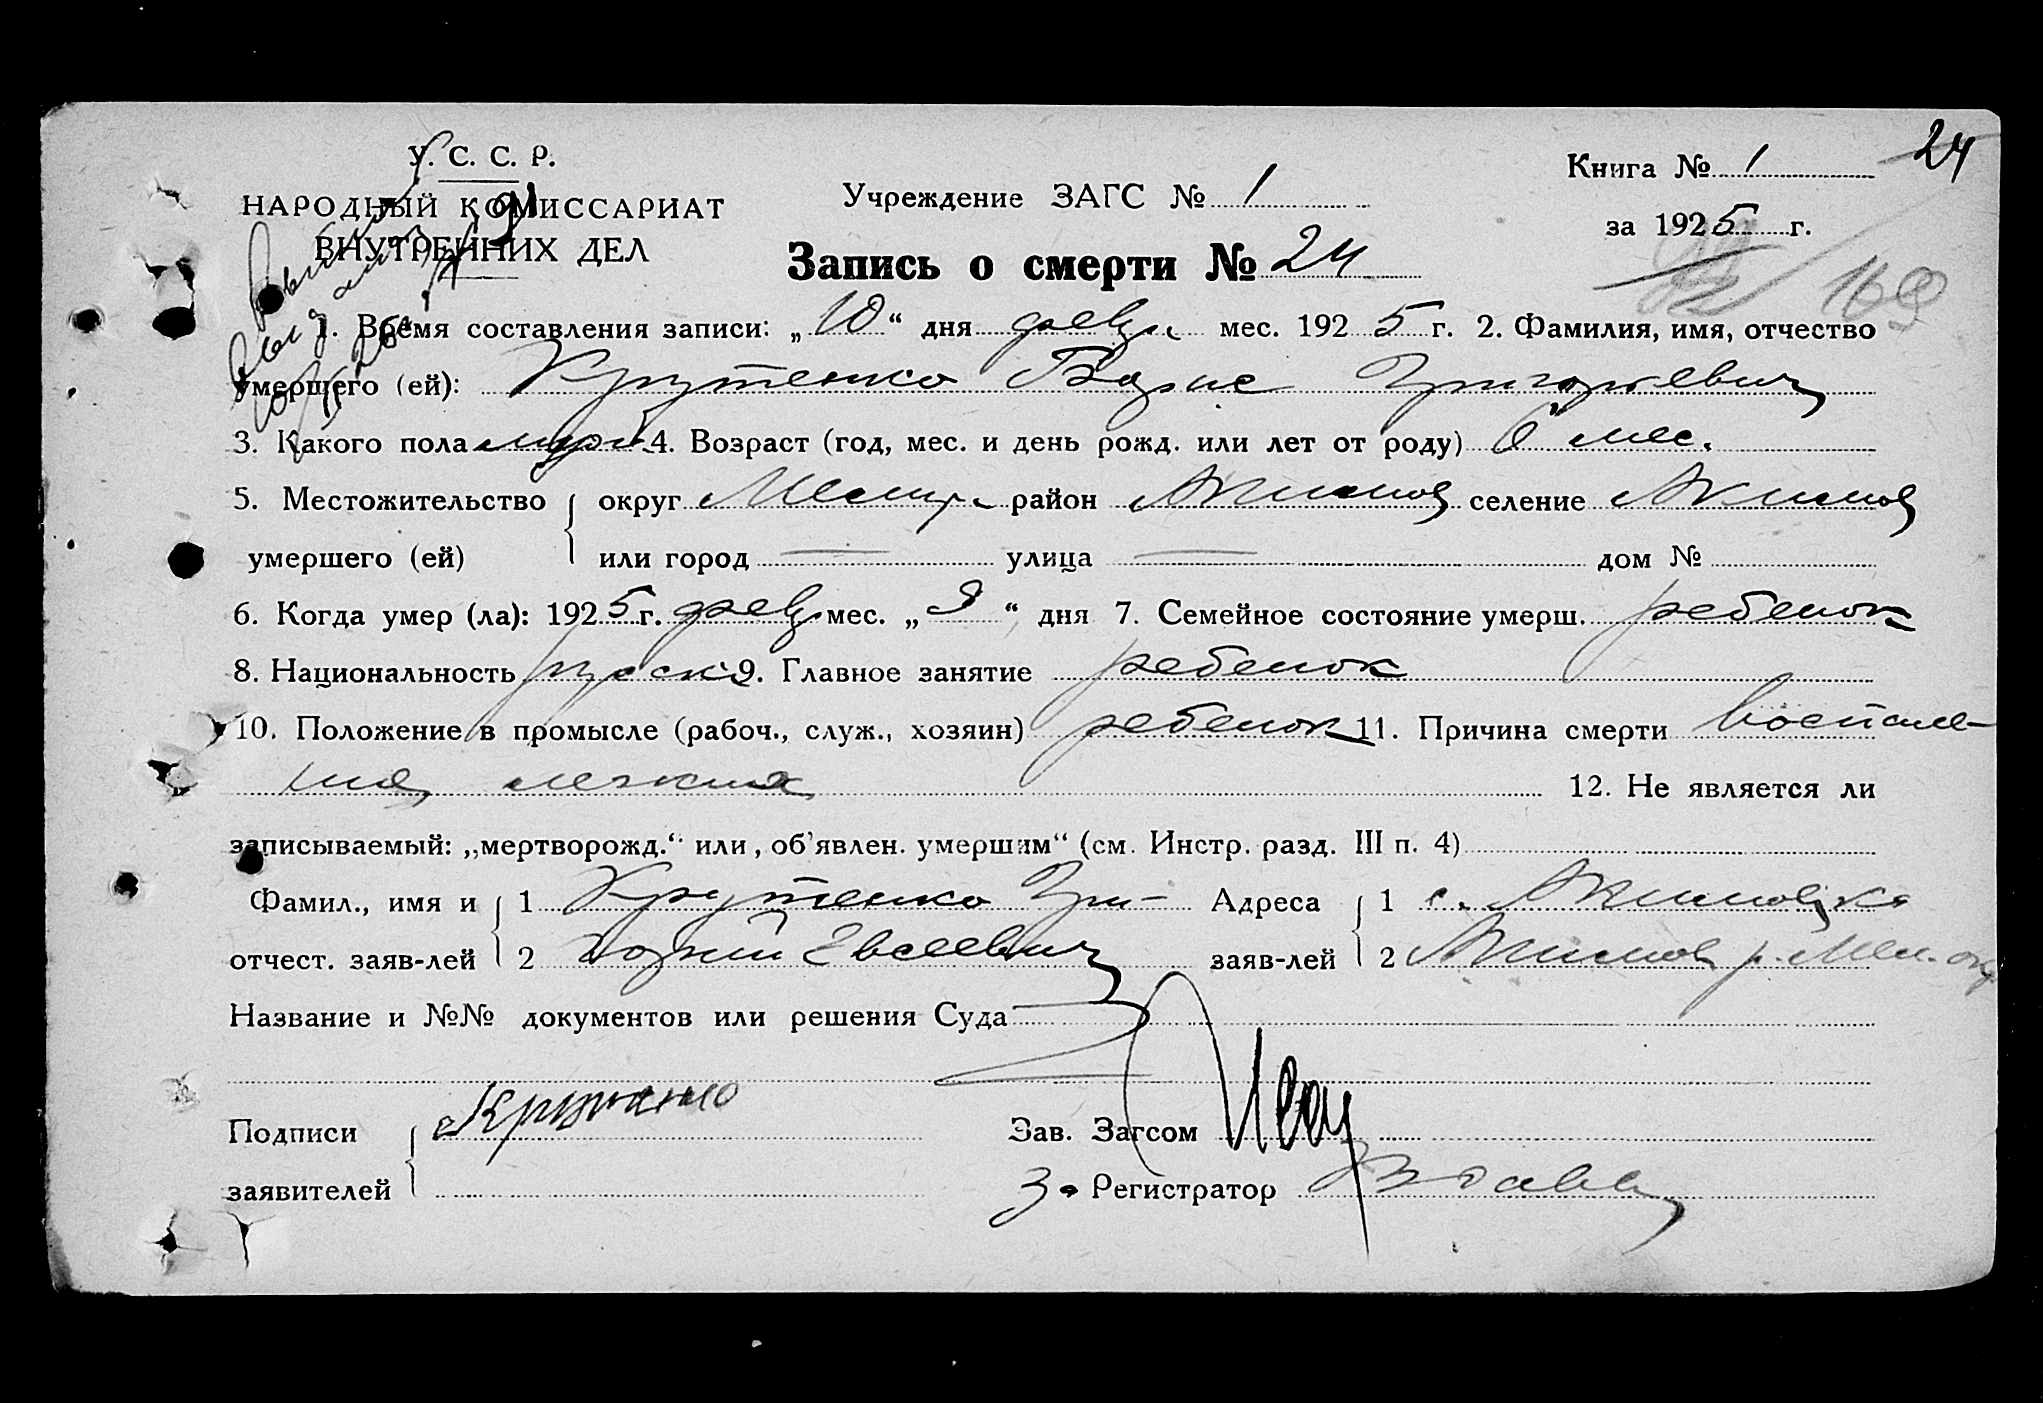 У. С. С. Р.
НАРОДНЫЙ КОМИССАРИАТ
ВНУТРЕННИХ ДЕЛ
Учреждение ЗАГС № 1
Книга № 1
24
за 1925 г.
Запись о смерти № 24
169
1. Время составления записи: „10“ дня февр. мес. 1925 г. 2. Фамилия, имя, отчество
умершего (ей): Крутенко Борис Григорьевич
3. Какого пола 4. Возраст (год, мес. и день рожд. или лет от роду) 6 мес.
5. Местожительство округ Мелит. район Акимов селение Акимов
умершего (ей) или город — улица — дом №
6. Когда умер (ла): 1925 г. февр. мес. „9“ дня 7. Семейное состояние умерш. ребенок
8. Национальность русск. 9. Главное занятие ребенок
10. Положение в промысле (рабоч., служ., хозяин) ребенок 11. Причина смерти воспале-
ния легких 12. Не является ли
записываемый: „мертворожд.“ или „об'явлен. умершим“ (см. Инстр. разд. III п. 4)
Фамил., имя и 1 Крутенко Гри- Адреса 1 с. Акимовка
отчест. заяв-лей 2 горий Евсеевич заяв-лей 2 Акимов р. Мел. окр
Название и №№ документов или решения Суда
Подписи Крутенко Зав. Загсом
заявителей З. Регистратор